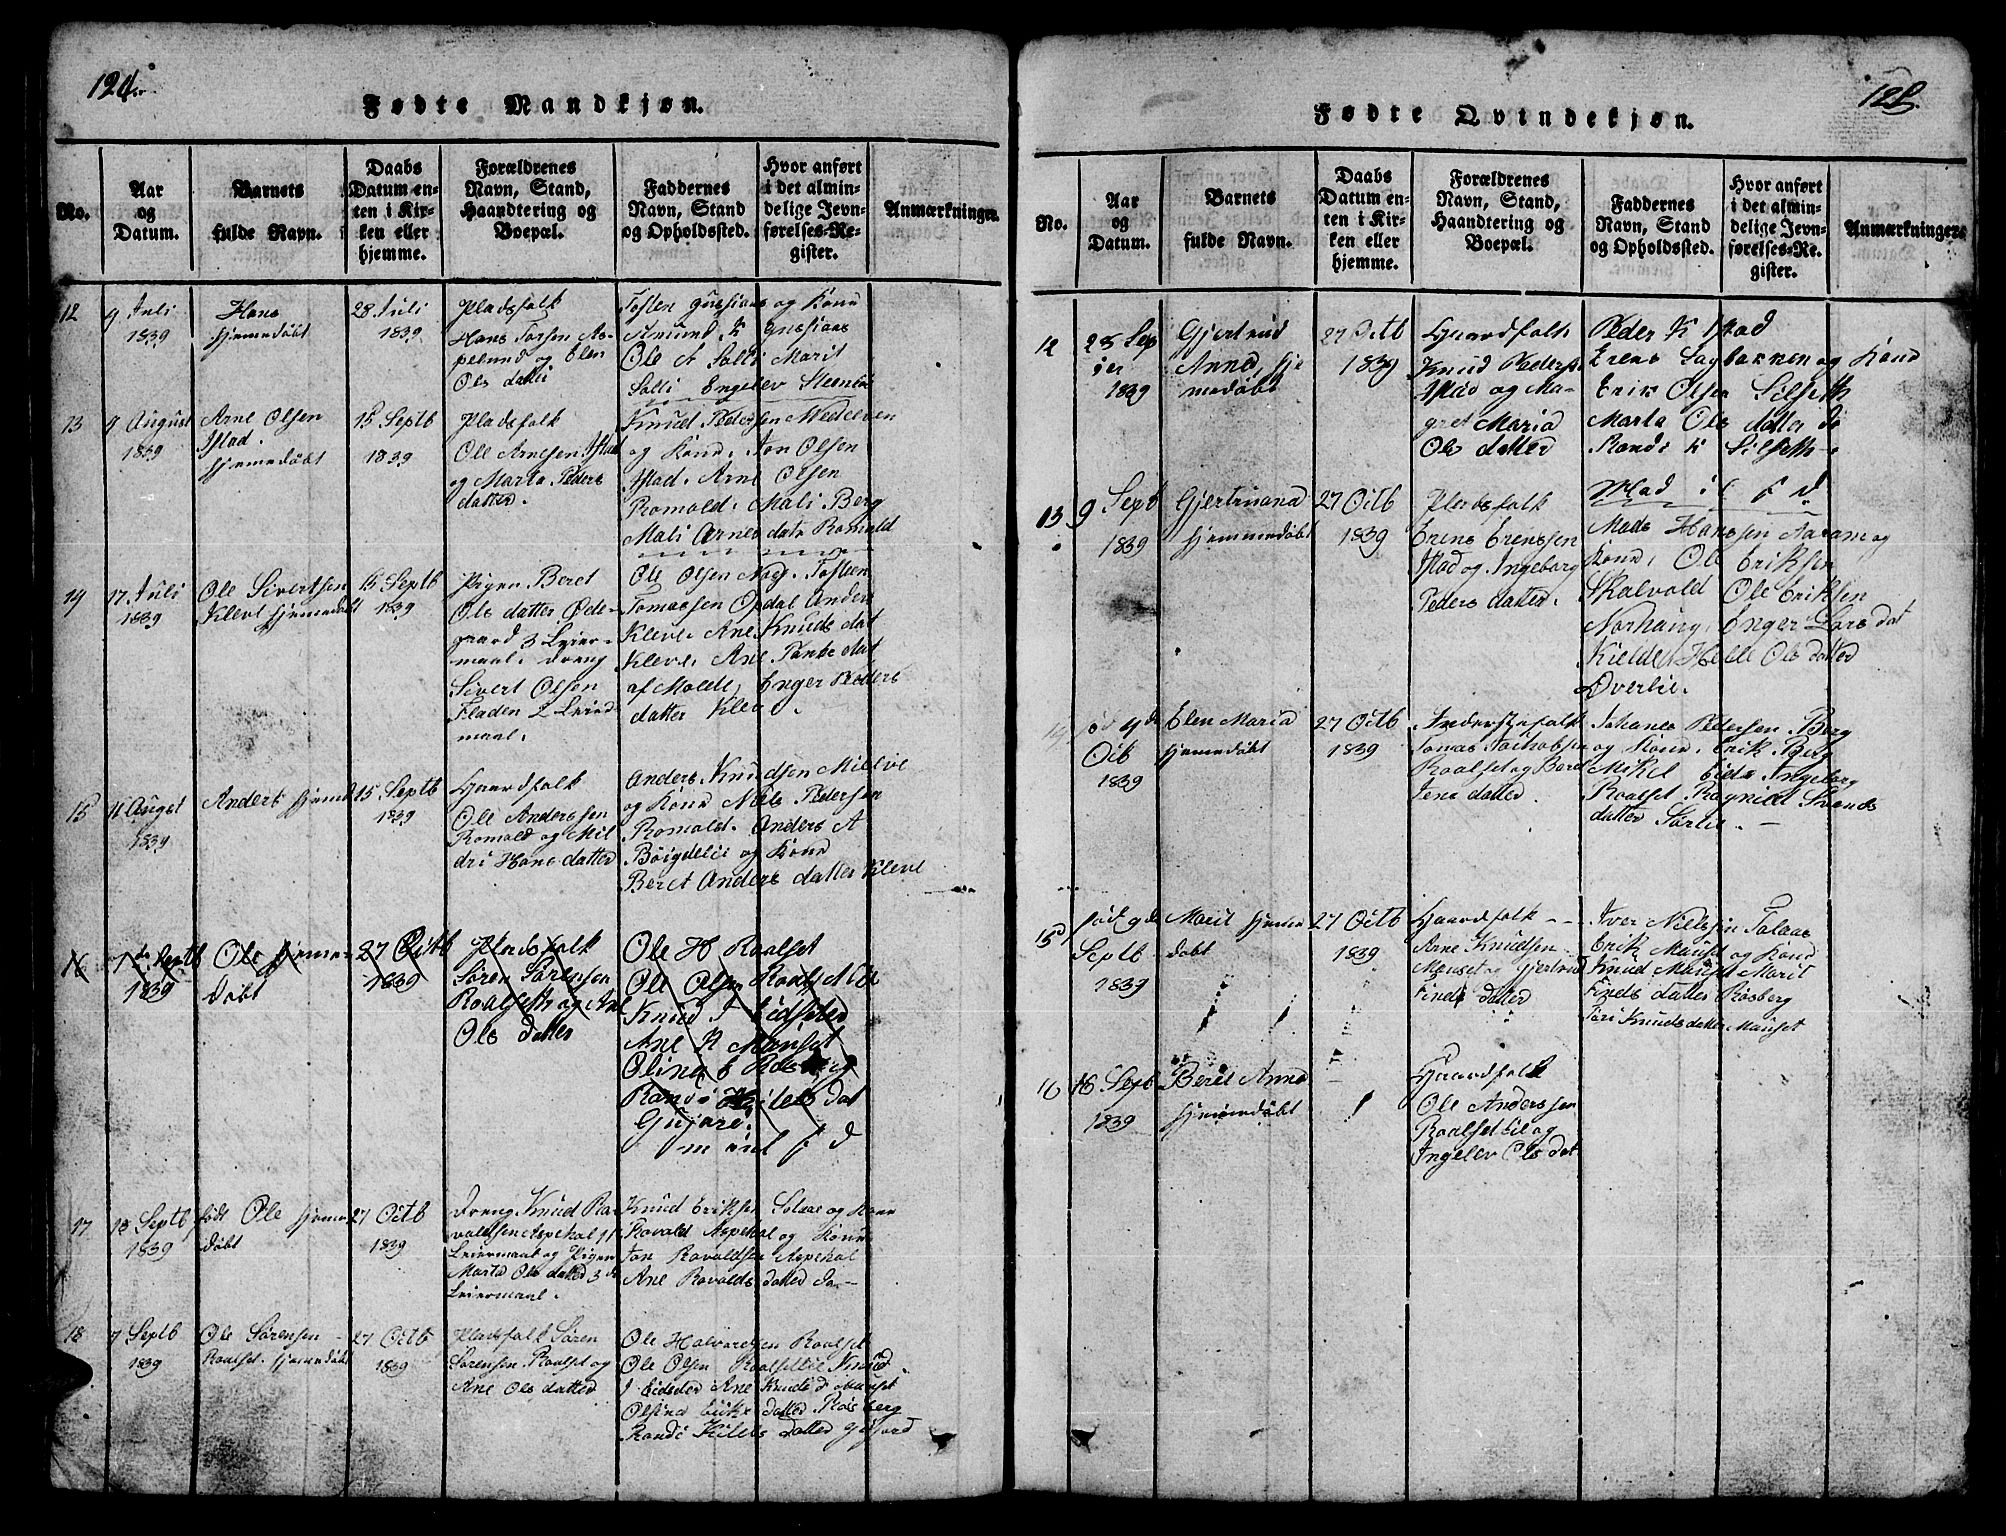 124
Fødte Mandkjøn.
No.
Aar
og
Datum.
Barnets
fulde Navn.
Daabs
Datum en-
ten i Kir-
ken eller
hjemme.
Forældrenes
Navn, Stand,
Haandtering og
Boepæl.
Faddernes
Navn, Stand
og Opholdssted.
Hvor anført
i det almin-
delige Jevn-
førelses-Re-
gister.
Anmærkninger.
12
9 Juli
1839
Hans
hjemedøbt
28 Juli
1839
Pladsfolk
Hans Torsen As-
pelund og Elen
Ols datter
Tosten Gussiaas og Kone
Amund K Gussiaas
Ole A Solli Marit
Solli Engelev
13
9 August
1839
Arne Olsen
Istad.
hjemedøbt
15 Septb
1839
Pladsfolk
Ole Arnesen Istad
og Marta Peders
datter.
Knud Pedersen
og Kone, Jon Olsen
Istad. Arne Olsen
Romald, Mali Berg
Mali Arnes datr Romald
14
17 Juli
1839
Ole Sivertsen
Kleve hjemedøbt
15 Septb
1839
Pigen Beret
Ols datter Øde-
gaard 3 Leier-
maal, dreng
Sivert Olsen
Fladen 2 Leier
maal.
Ole Olsen Næs. Tosten
Tomassen Opdal Anders
Kleve, Ane Knuds dat
Kleve, Ane dat
af Molde, Enger Peders
datter Kleve.
15
16 Augst
1839
Anders hjeme
15 Septb
1839
Gaardfolk
Ole Anderssen
Romald og Mil
dri Hans datter
Anders Knudsen
og Kone Niels Pedersen
Romald. Anders A
Bøigdelie og Kone
Beret Anders datter Kleve
16
7de Septb
1839
Ole hjeme-
døbt
27 Octb
1839
Pladsfolk
Søren Sørensen
Roalseth og Ane
Ols datter
Ole H Roalset
Ole Olsen
Knud I Eidseter
Ane K Mauset
Olina E Røsberg
Randi Kilels dat
17
18 Septb
1839
født Ole hjeme
døbt
27 Octb
1839
dreng Knud Ro
valdsen Aspehol
Leiermaal og Pigen
Marta Ols datter 3 de
Leiermaal.
Knud Eriksen Solaas og Kone
Rovald Aspehol og Kone
Jon Rovaldsen Aspehol
Ane Rovalds datter do-
18
7 Septb
1839
Ole Sørensen
Roalset. hjemedøbt
27 Octb
1839
Pladsfolk Søren
Sørensen Roalset og
Ane Ols datter
Ole Halvorsen Roalset
Ole Olsen Roalsetlie Knud
I Eidseter Ane Knuds d Mauset
Olsina Eriks datter Røsberg
Randi Kilels datter
125
Fødte Qvindekjøn.
No.
Aar
og
Datum.
Barnets
fulde Navn.
Daabs
Datum en-
ten i Kir-
ken eller
hjemme.
Forældrenes
Navn, Stand,
Haandtering og
Boepæl.
Faddernes
Navn, Stand
og Opholdssted.
Hvor anført
i det almin-
delige Jevn-
førelses-Re-
gister.
Anmærkninger.
12
Sep
1839
Gjertrud
Anna, hje
medøbt
27 Octb
1839
Gaardfolk
Knud Peders
Istad og Ma-
gret Maria
Ols datter
Peder K Istad
Erens og Kone
Erik Olsen Silseth
Marta Ols datter do
Randi K Silseth
13
9 Septb
1839
Gjertruana
hjemmedøbt
27 Octb
1839
Pladsfolk
Erens Erenssen
Istad og Ingeborg
Peders datter.
Mads Hanssen Aarøen og
Kone, Ole Eriksen
Skalvold Ole Eriksen
Norhaug, Enger Lars dat
Kielde, Helle Ols datter
Øverlie.
14
4de
Octb
1839
Elen Maria
hjemedøbt
27 Octb
1839
Jonas
Roalset og Beret
Jens datter.
Johanes Pedersen Berg
og Kone, Erik Berg
Mikel Eide Ingeborg
Roalset Ragnild
datter Sørlie.
15
født 9de
Septb
1839
Marit hjeme
døbt
27 Octb
1839
Gaardfolk
Arne Knudsen
Mauset og Gjertrud
Finds datter
Iver Nielsen Solaas
Erik Mauset og Kone
Knud Mauset Marit
Finds datter Røsberg
Siri Knuds datter Mauset
16
16 Septb
1839
Berit Anna
hjemedøbt
Gaardfolk
Ole Anderssen
Roalset lie og
Ingelev Ols dat